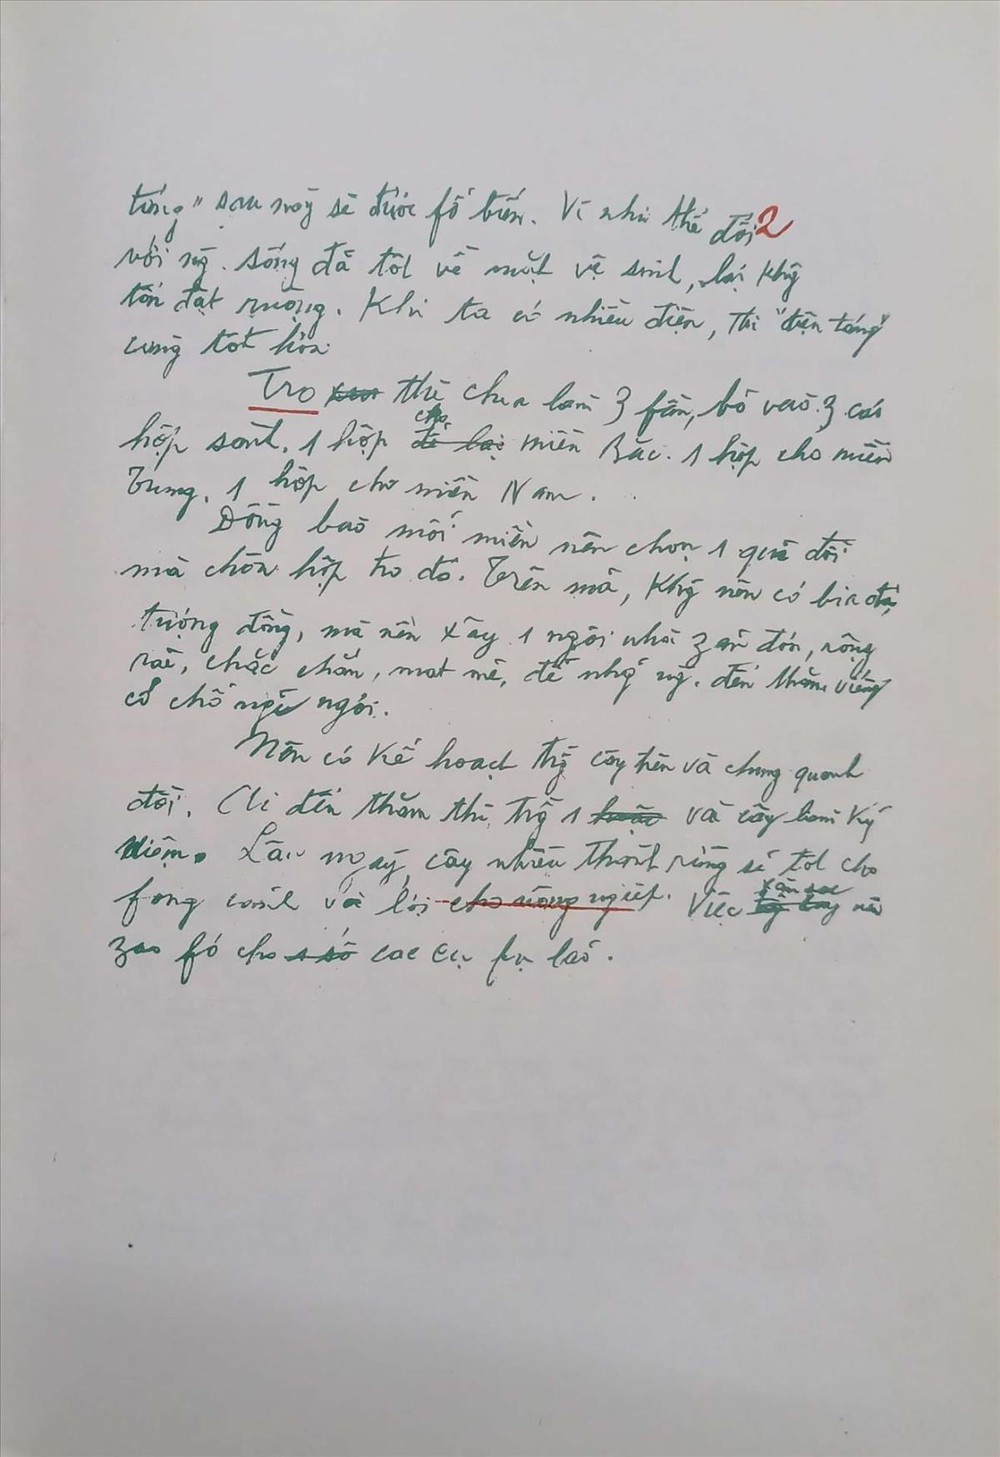 táng" sau này sẽ được fổ biến. Vì như thế đối 2
với ng. sống đã tốt về mặt vệ sinh, lại khg
tốn đất ruộng. Khi ta có nhiều điện, thì "điện táng"
càng tốt hơn.
Tro xươ thì chia làm 3 fần, bỏ vào 3 cái
hộp sành. 1 hộp cho để lại miền Bắc. 1 hộp cho miền
Trung. 1 hộp cho miền Nam.
Đồng bào mỗi miền nên chọn 1 quả đồi
mà chôn hộp tro đó. Trên mả, khg nên có bia đá
tượng đồng, mà nên xây 1 ngôi nhà zản đơn, rộng
rãi, chắc chắn, mát mẻ, để nhg ng. đến thăm viếng
có chỗ nghỉ ngơi.
Nên có kế hoạch trg cây trên và chung quanh
đồi. Ai đến thăm thì trg 1 hoặc vài cây làm kỷ
niệm. Lâu ngày, cây nhiều thành rừng sẽ tốt cho
fong cảnh và lợi cho nông ngiệp. Việc trg cây săn sóc nên
zao fó cho 1 số các cụ fụ lão.